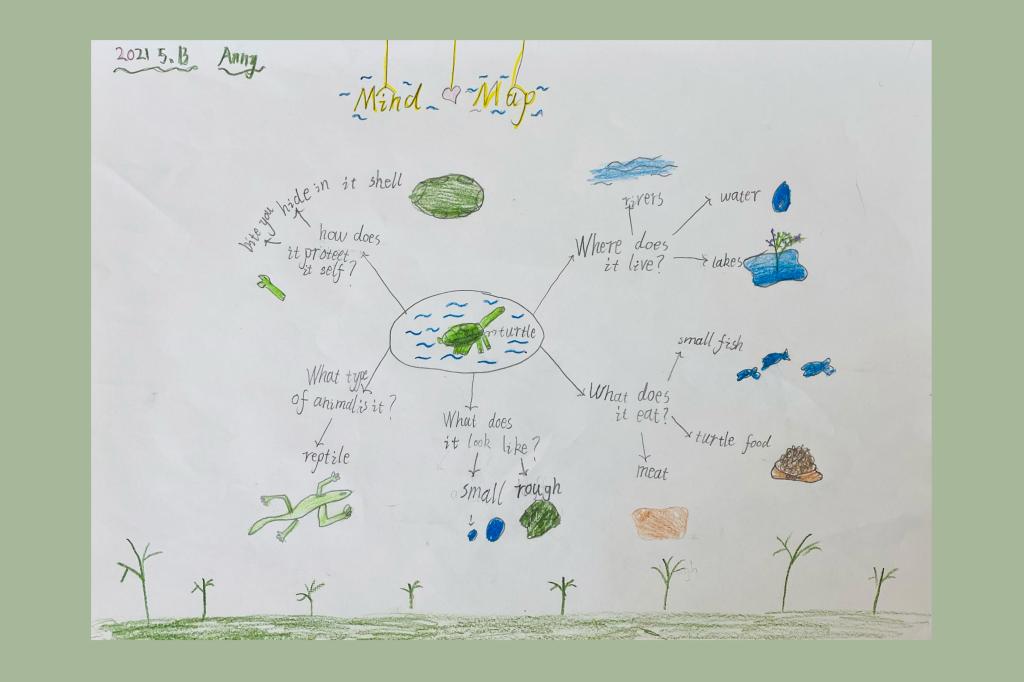 2021 5.13 Anny
Mind Map
hide in it shell
bite you
how does
it protect
it self?
rivers
water
Where does
it live?
lakes
turtle
small fish
What type
of animal is it?
reptile
What does
it look like?
small rough
What does
it eat?
turtle food
meat